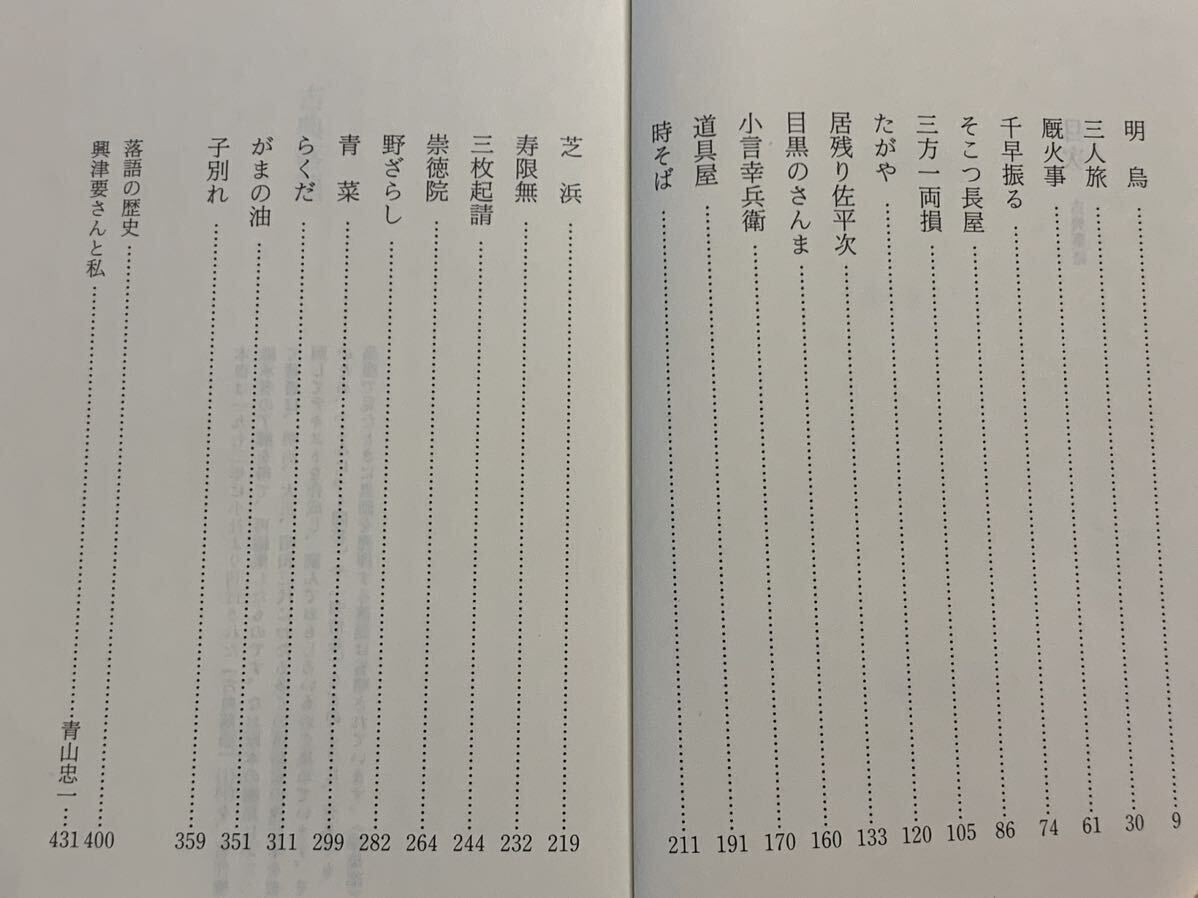 明烏……9
三人旅……30
厩火事……61
千早振る……74
そこつ長屋……86
三方一両損……105
たがや……120
居残り佐平次……133
目黒のさんま……160
小言幸兵衛……170
道具屋……191
時そば……211
芝浜……219
寿限無……232
三枚起請……244
崇徳院……264
野ざらし……282
青菜……299
らくだ……311
がまの油……351
子別れ……359
落語の歴史……400
興津要さんと私……青山忠一…431